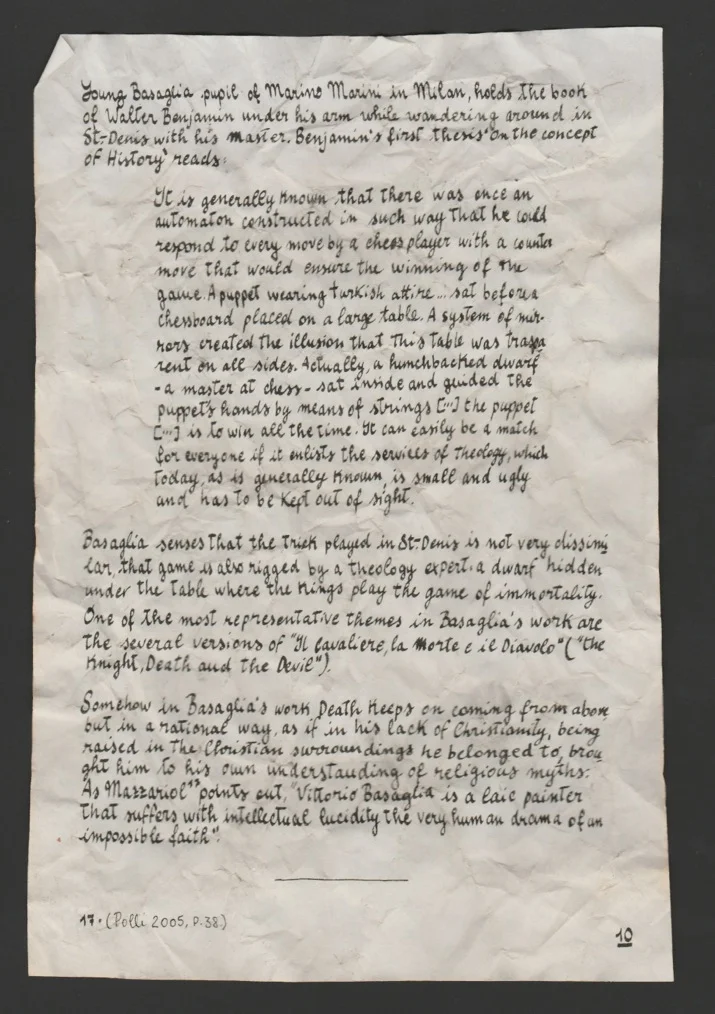 Young Basaglia pupil of Marino Marini in Milan, holds the book
of Walter Benjamin under his arm while wandering around in
St-Denis with his master. Benjamin's first thesis "on the concept
of History" reads:
It is generally known that there was once an
automaton constructed in such way that he could
respond to every move by a chess player with a counter
move that would ensure the winning of the
game. A puppet wearing turkish attire ... sat before a
chessboard placed on a large table. A system of mir-
rors created the illusion that this table was traspa
rent on all sides. Actually, a hunchbacked dwarf
- a master at chess - sat inside and guided the
puppet's hands by means of strings [...] the puppet
[...] is to win all the time. It can easily be a match
for everyone if it enlists the services of Theology, which
today, as is generally known, is small and ugly
and has to be kept out of sight.
Basaglia senses that the trick played in St-Denis is not very dissimi
lar, that game is also rigged by a theology expert: a dwarf hidden
under the table where the Kings play the game of immortality.
One of the most representative themes in Basaglia's work are
the several versions of "Il cavaliere, la Morte e il Diavolo" ("the
Knight, Death and the Devil").
Somehow in Basaglia's work Death keeps on coming from above
but in a rational way, as if in his lack of Christianity, being
raised in the Christian surroundings he belonged to, brou
ght him to his own understanding of religious myths.
As Mazzariol¹⁷ points out, "Vittorio Basaglia is a laic painter
that suffers with intellectual lucidity the very human drama of an
impossible faith".
17. (Polli 2005, p.38.)
10